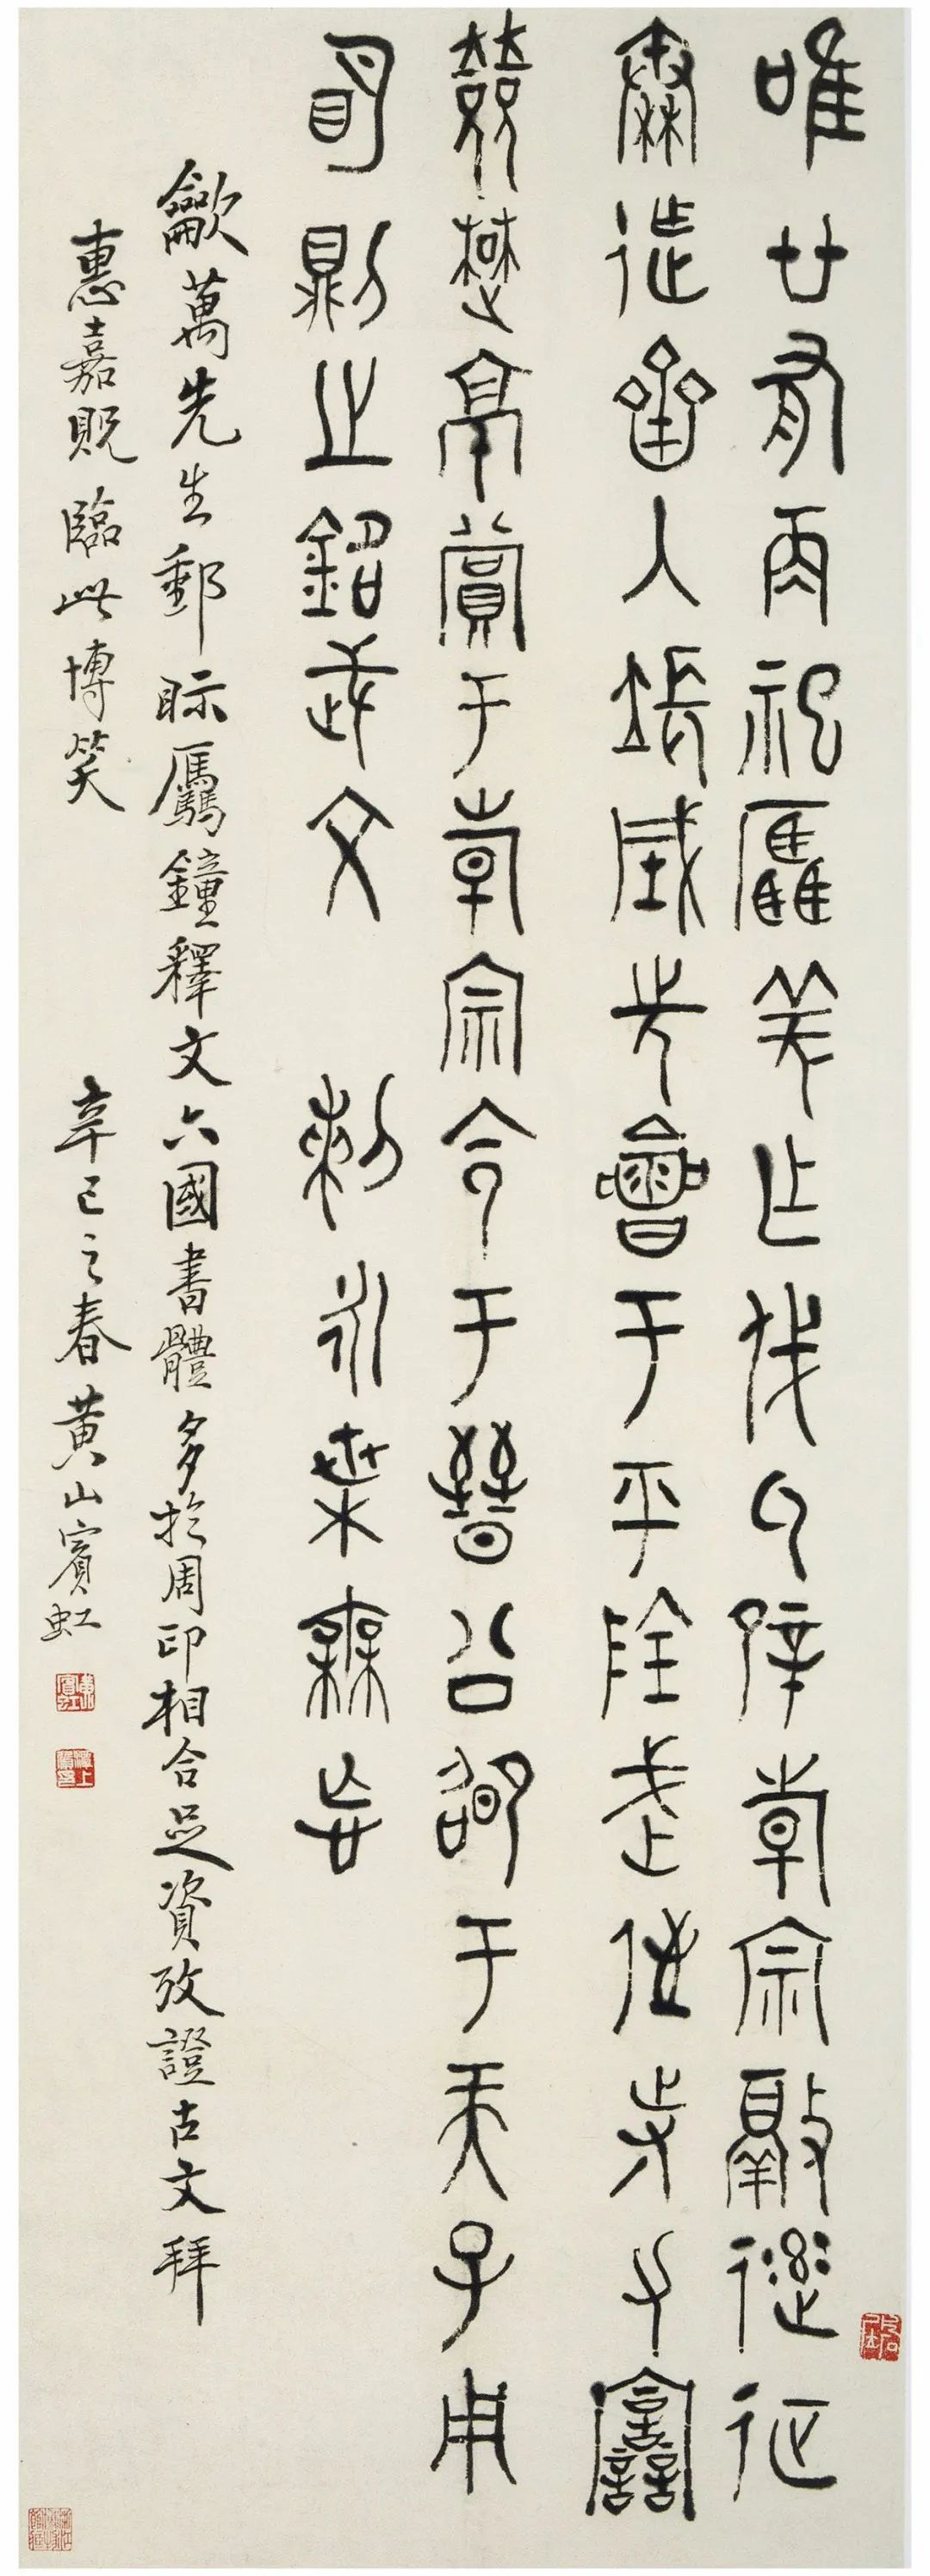 唯廿又再祀驫羌乍戎氒辟倝宗敲達征
秦迮齊入張城先會于平陰武侄寺力譶
敓楚京賞于倝宗令于晉公卲于天子用
明則之銘武文 剌永枼毋忘
龡萬先生郵眎驫鐘釋文六國書體多於周印相合足資攷證古文拜
惠嘉貺臨此博笑 辛巳之春黃山賓虹